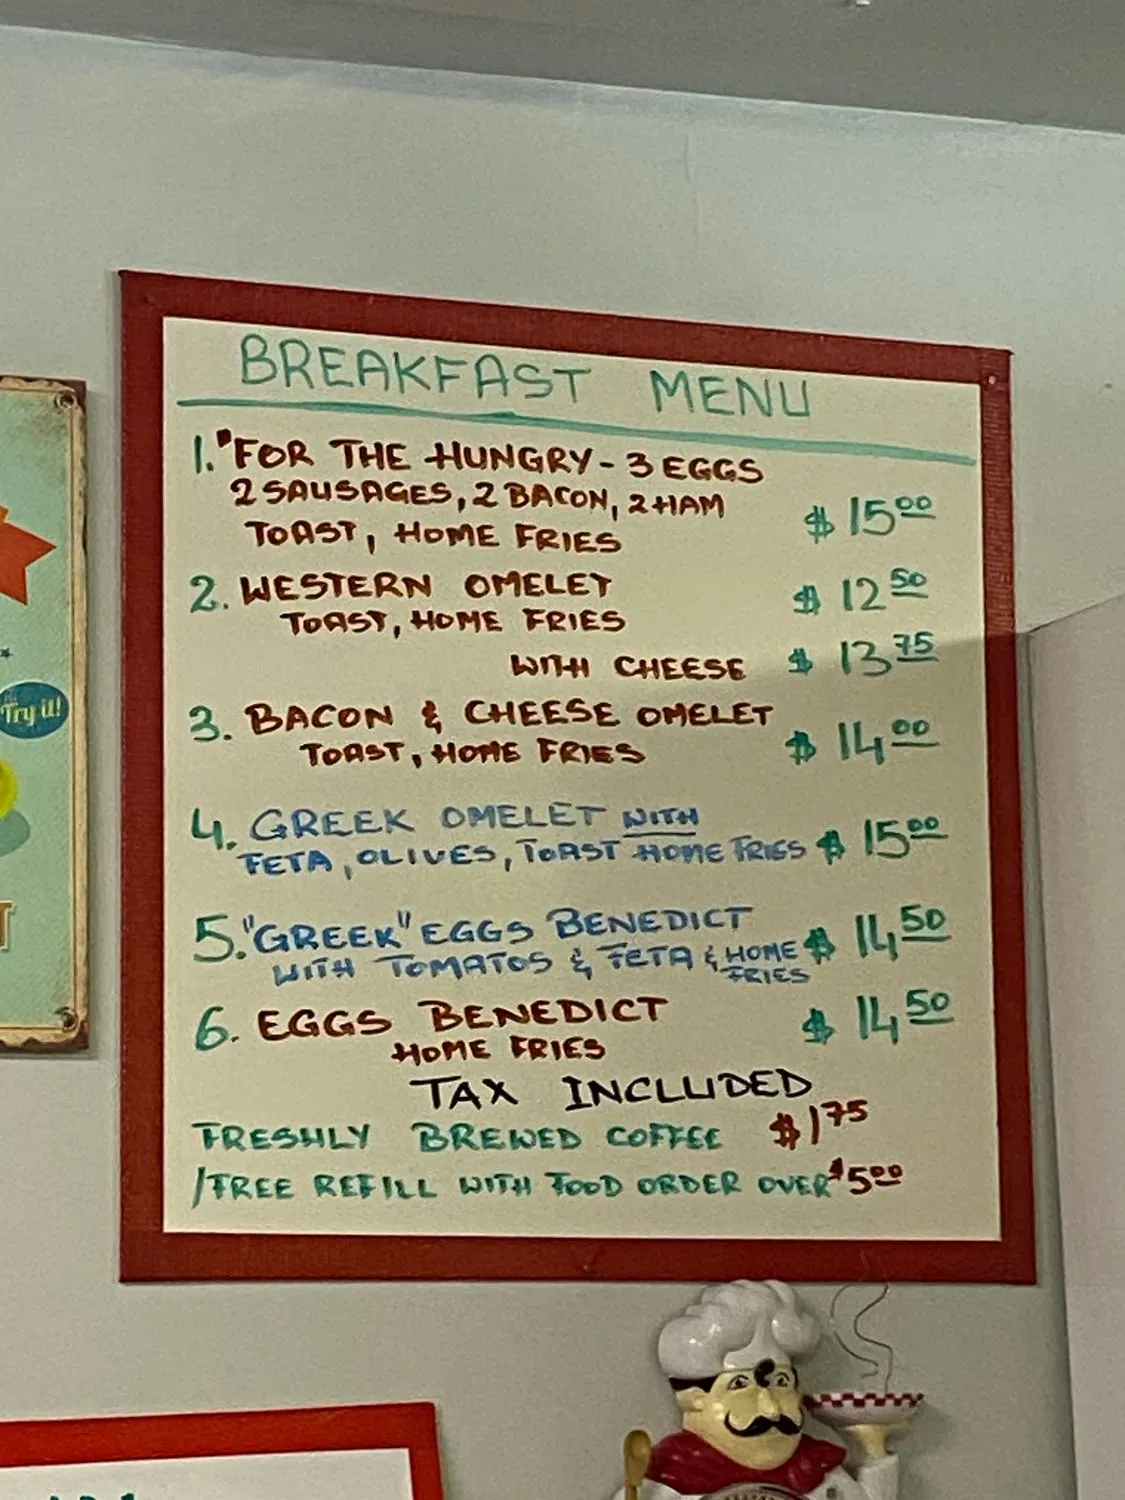 BREAKFAST MENU
1. "FOR THE HUNGRY - 3 EGGS
2 SAUSAGES, 2 BACON, 2 HAM
TOAST, HOME FRIES $ 15.00
2. WESTERN OMELET $ 12.50
TOAST, HOME FRIES
WITH CHEESE $ 13.75
3. BACON & CHEESE OMELET
TOAST, HOME FRIES $ 14.00
4. GREEK OMELET WITH
FETA, OLIVES, TOAST HOME FRIES $ 15.00
5. "GREEK" EGGS BENEDICT $ 14.50
WITH TOMATOS & FETA & HOME FRIES
6. EGGS BENEDICT $ 14.50
HOME FRIES
TAX INCLUDED
FRESHLY BREWED COFFEE $1.75
/FREE REFILL WITH FOOD ORDER OVER $5.00
Try it!